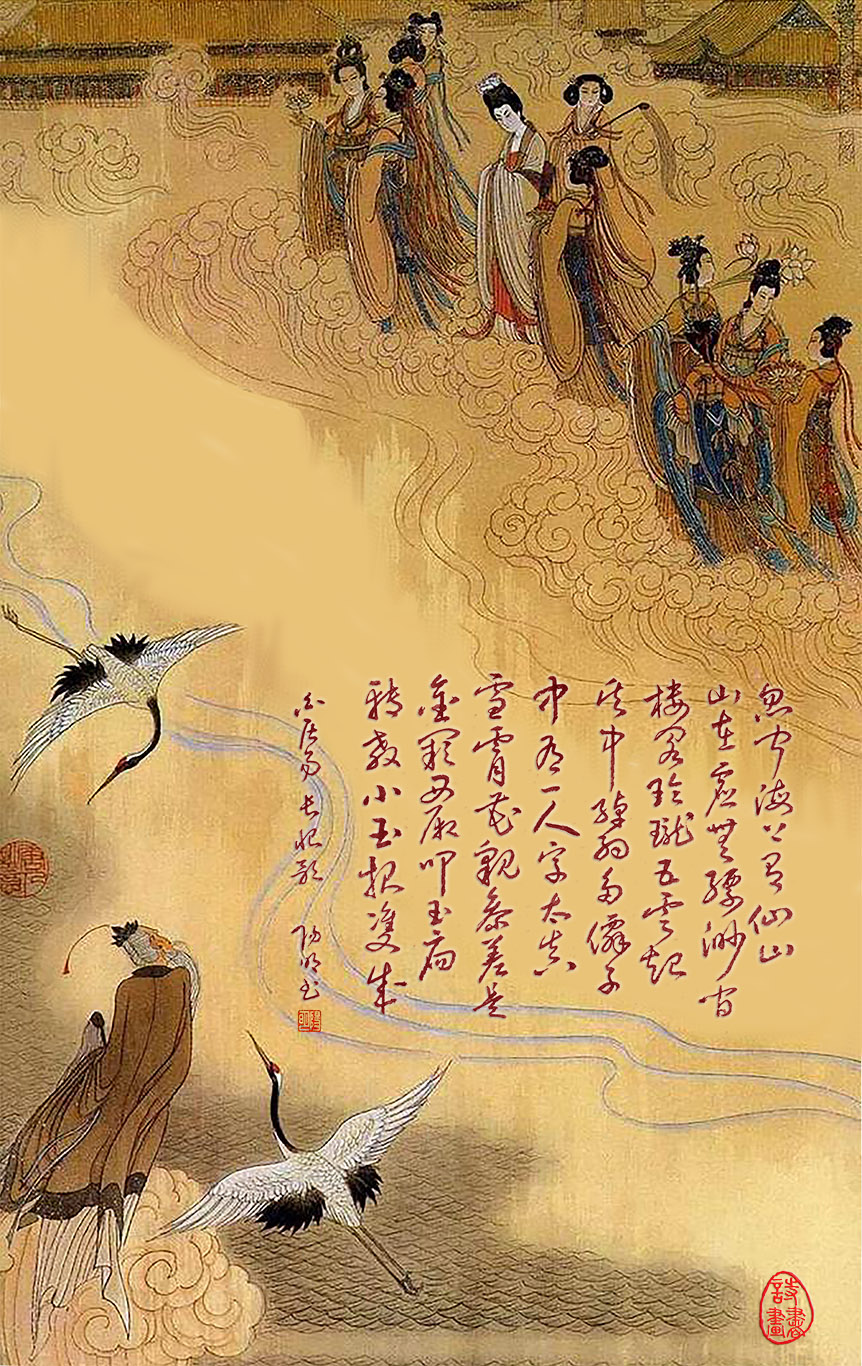 忽闻海上有仙山
山在虚無缥缈间
楼阁玲珑五雲起
其中绰约多僊子
中有一人字太真
雪膚花貌参差是
金阙西厢叩玉扃
轉教小玉报雙成
白居易长恨歌 阳明书
詩書畫